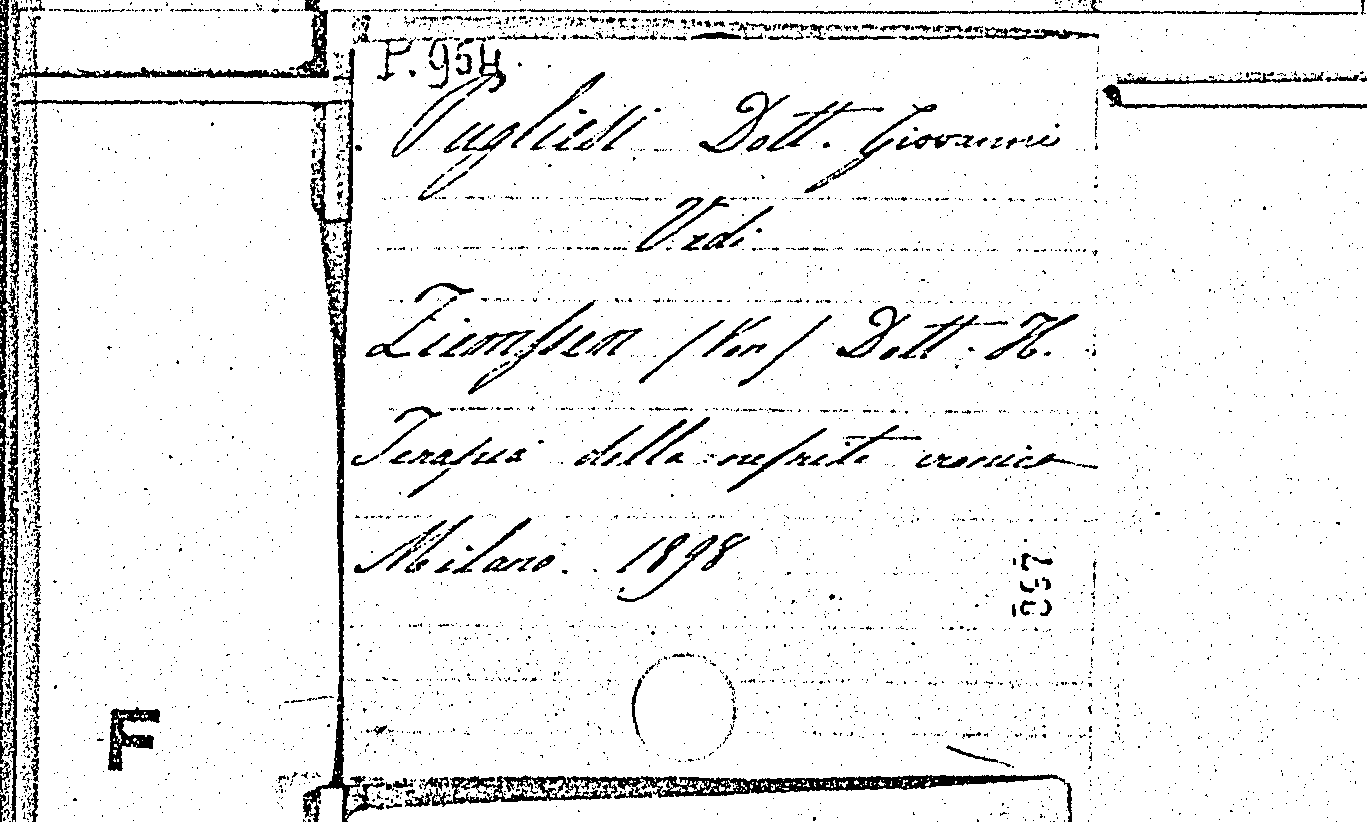 P. 954.
Pugliesi Dott. Giovanni
Vedi
Ziemssen (Von) Dott. H.
Terapia della nefrite cronica
Milano. 1898
F